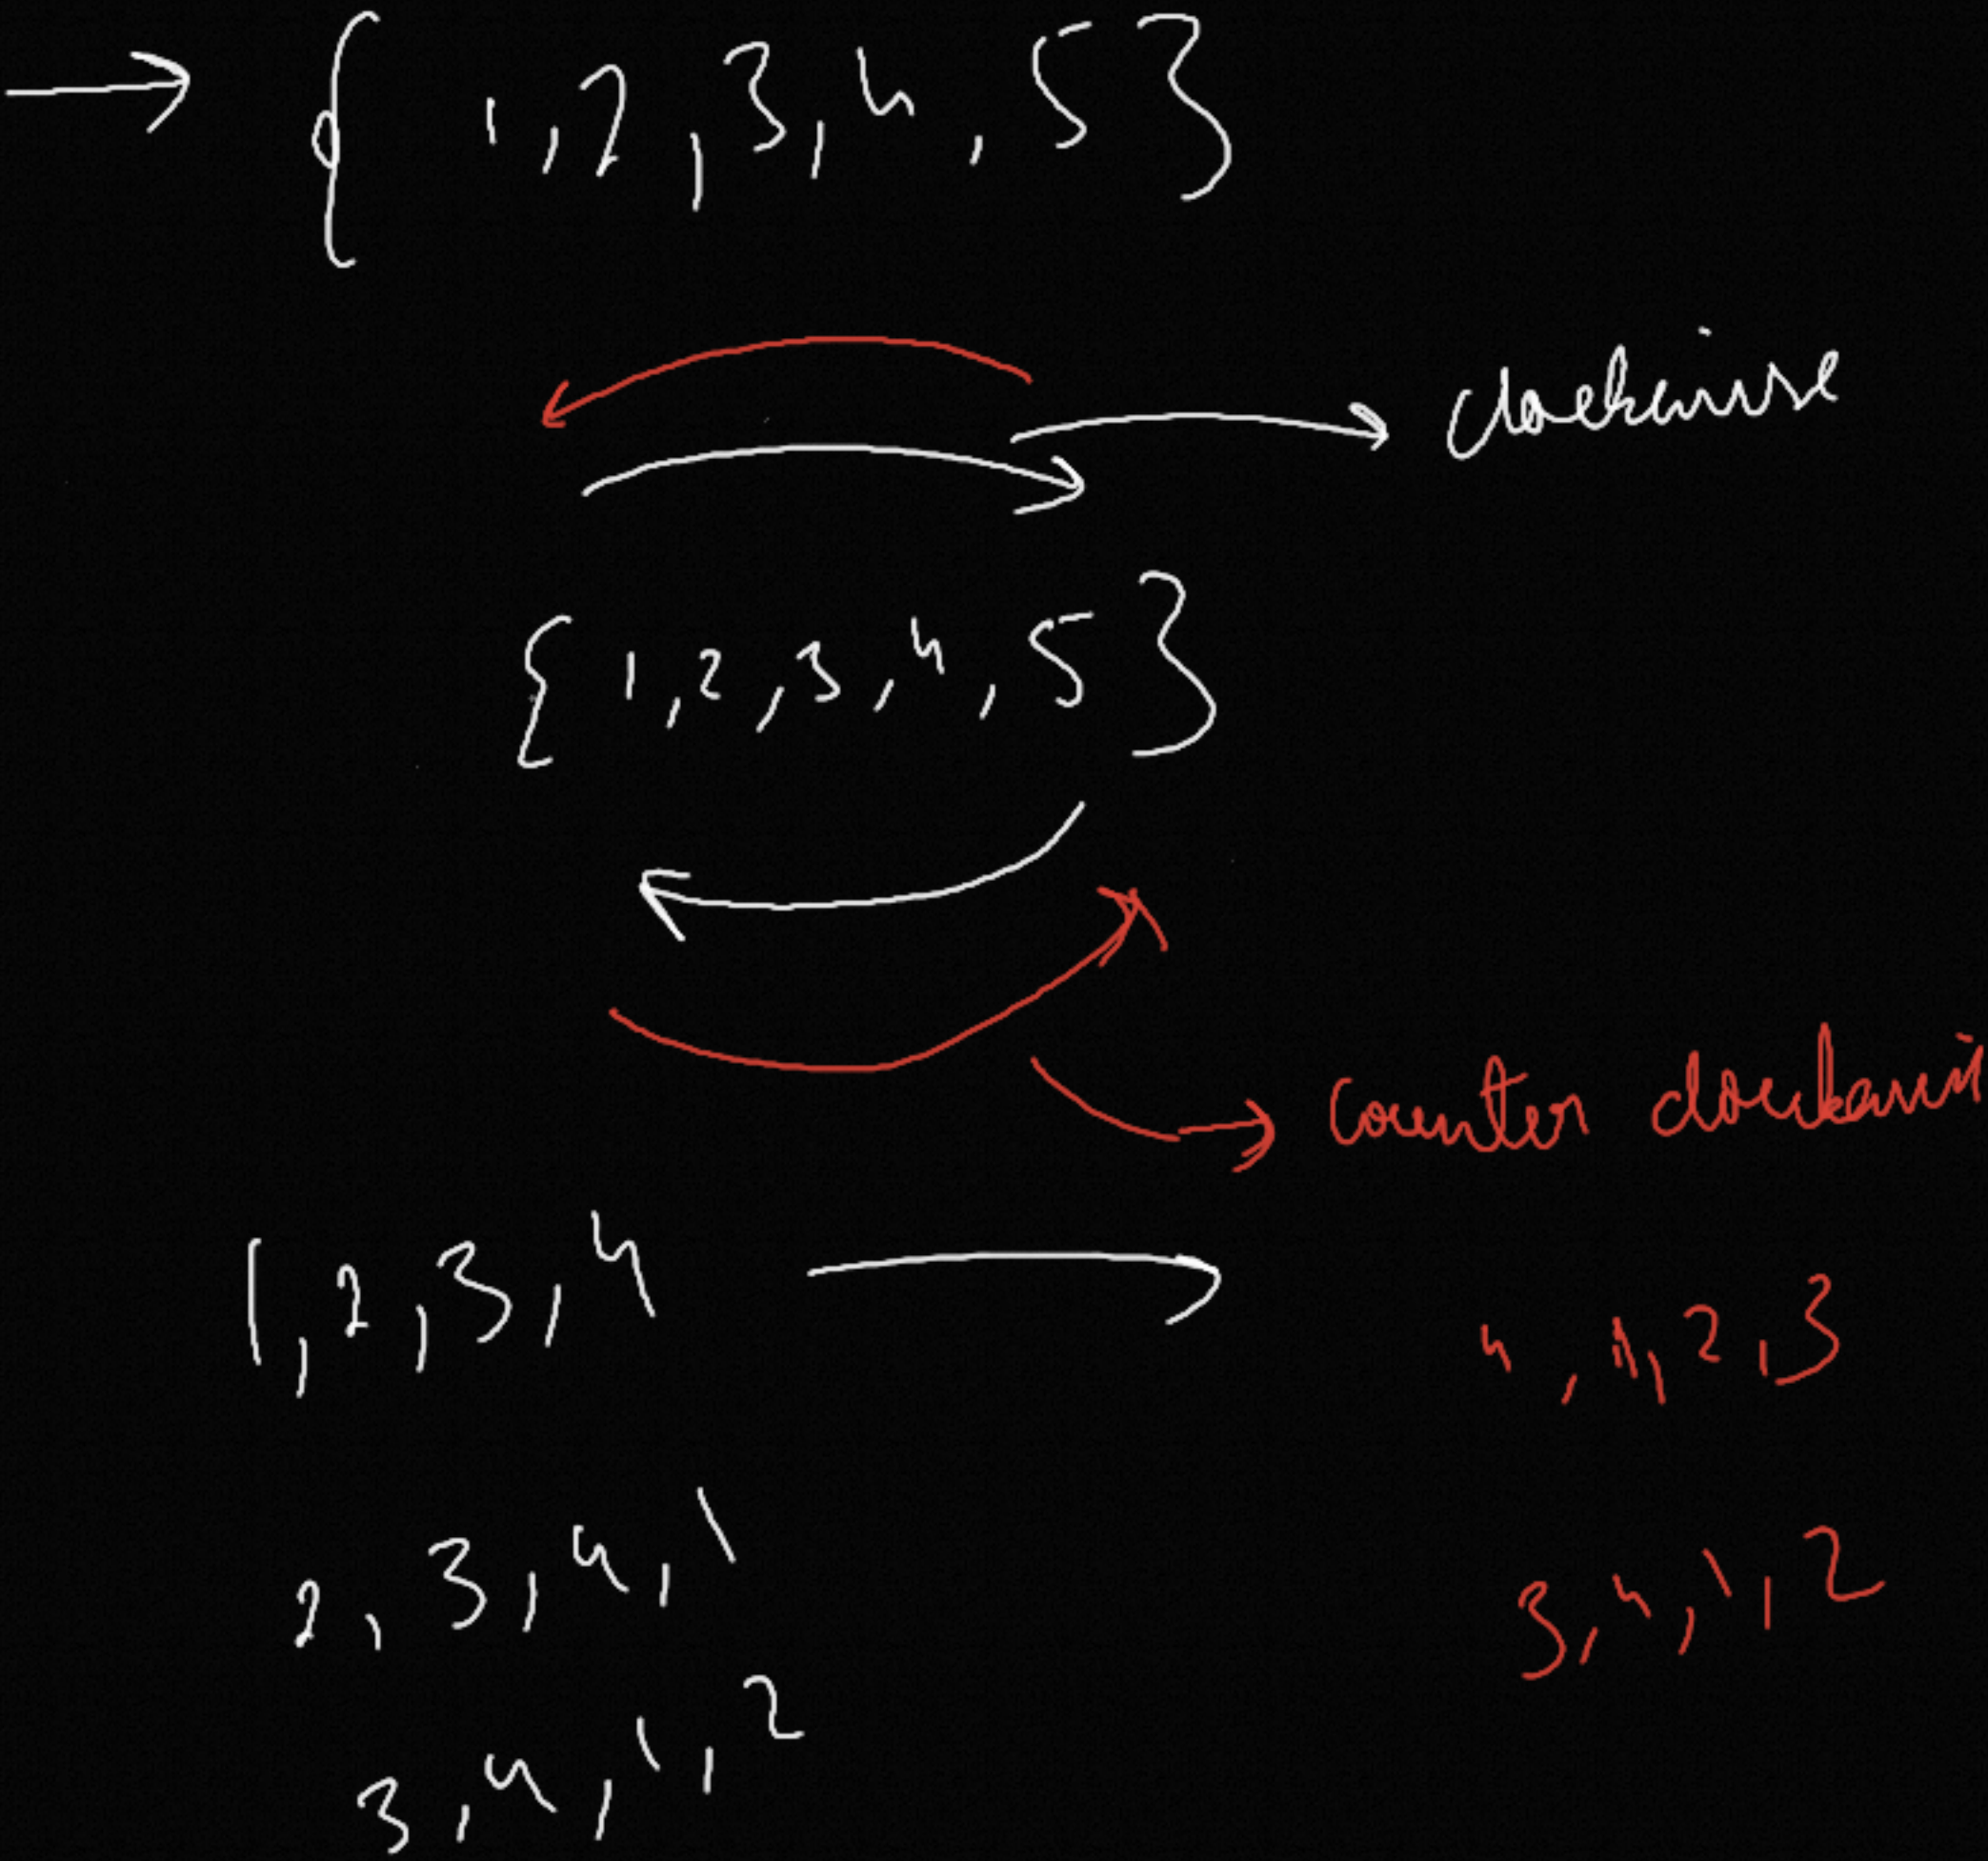 → { 1, 2, 3, 4, 5 }
→ clockwise
{ 1, 2, 3, 4, 5 }
→ counter clockwi
1, 2, 3, 4 →
4, 1, 2, 3
2, 3, 4, 1
3, 4, 1, 2
3, 4, 1, 2